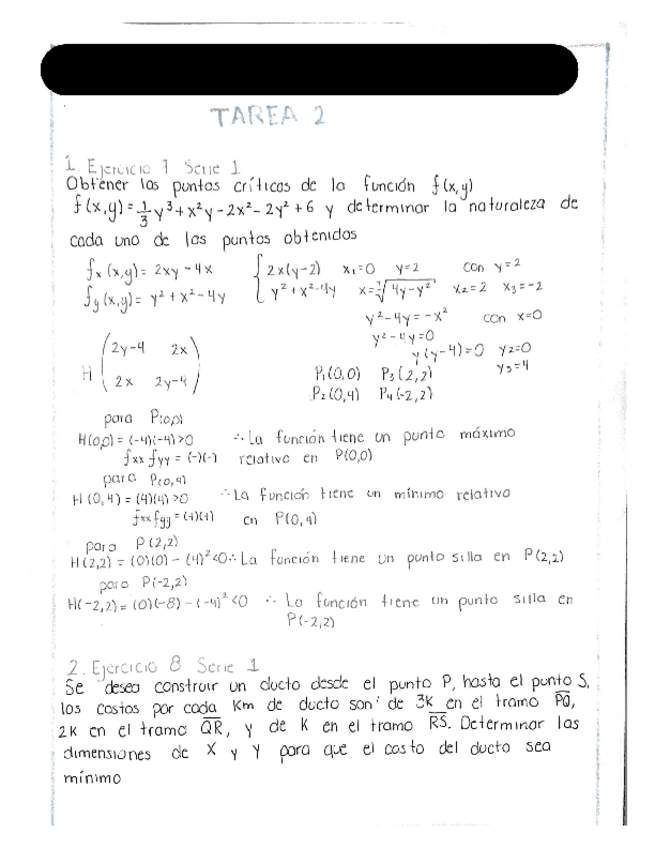 TAREA 2
1. Ejercicio 7 Serie 1
Obtener los puntos críticos de la función f(x,y)
f(x,y)=1/3 y³+x²y-2x²-2y²+6 y determinar la naturaleza de
cada uno de los puntos obtenidos
fx (x,y)= 2xy-4x { 2x(y-2) x₁=0 y=2 con y=2
fy(x,y)= y²+x²-4y y²+x²-4y x=√4y-y² x₂=2 x₃=-2
y²-4y=-x² con x=0
y²-4y=0
y(y-4)=0 y₂=0
y₃=4
H (2y-4 2x
2x 2y-4)
P₁(0,0) P₃(2,2)
P₂(0,4) P₄(-2,2)
para P(0,0)
H(0,0)= (-4)(-4)>0 ∴ La función tiene un punto máximo
fxx fyy = (-)(-) relativo en P(0,0)
para P(0,4)
H(0,4)= (4)(4)>0 ∴ La función tiene un mínimo relativo
fxx fyy=(+)(+) en P(0,4)
para P(2,2)
H(2,2)= (0)(0)-(4)²<0 ∴ La función tiene un punto silla en P(2,2)
para P(-2,2)
H(-2,2)= (0)(-8)-(-4)²<0 ∴ La función tiene un punto silla en
P(-2,2)
2. Ejercicio 8 Serie 1
Se desea construir un ducto desde el punto P, hasta el punto S,
los costos por cada Km de ducto son de 3K en el tramo PQ,
2K en el tramo QR, y de K en el tramo RS. Determinar las
dimensiones de X y Y para que el costo del ducto sea
mínimo